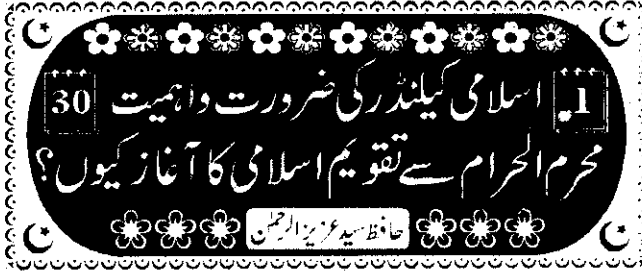 1 اسلامی کیلنڈر کی ضرورت و اہمیت 30
محرم الحرام سے تقویم اسلامی کا آغاز کیوں؟
حافظ سید عزیز الرحمٰن